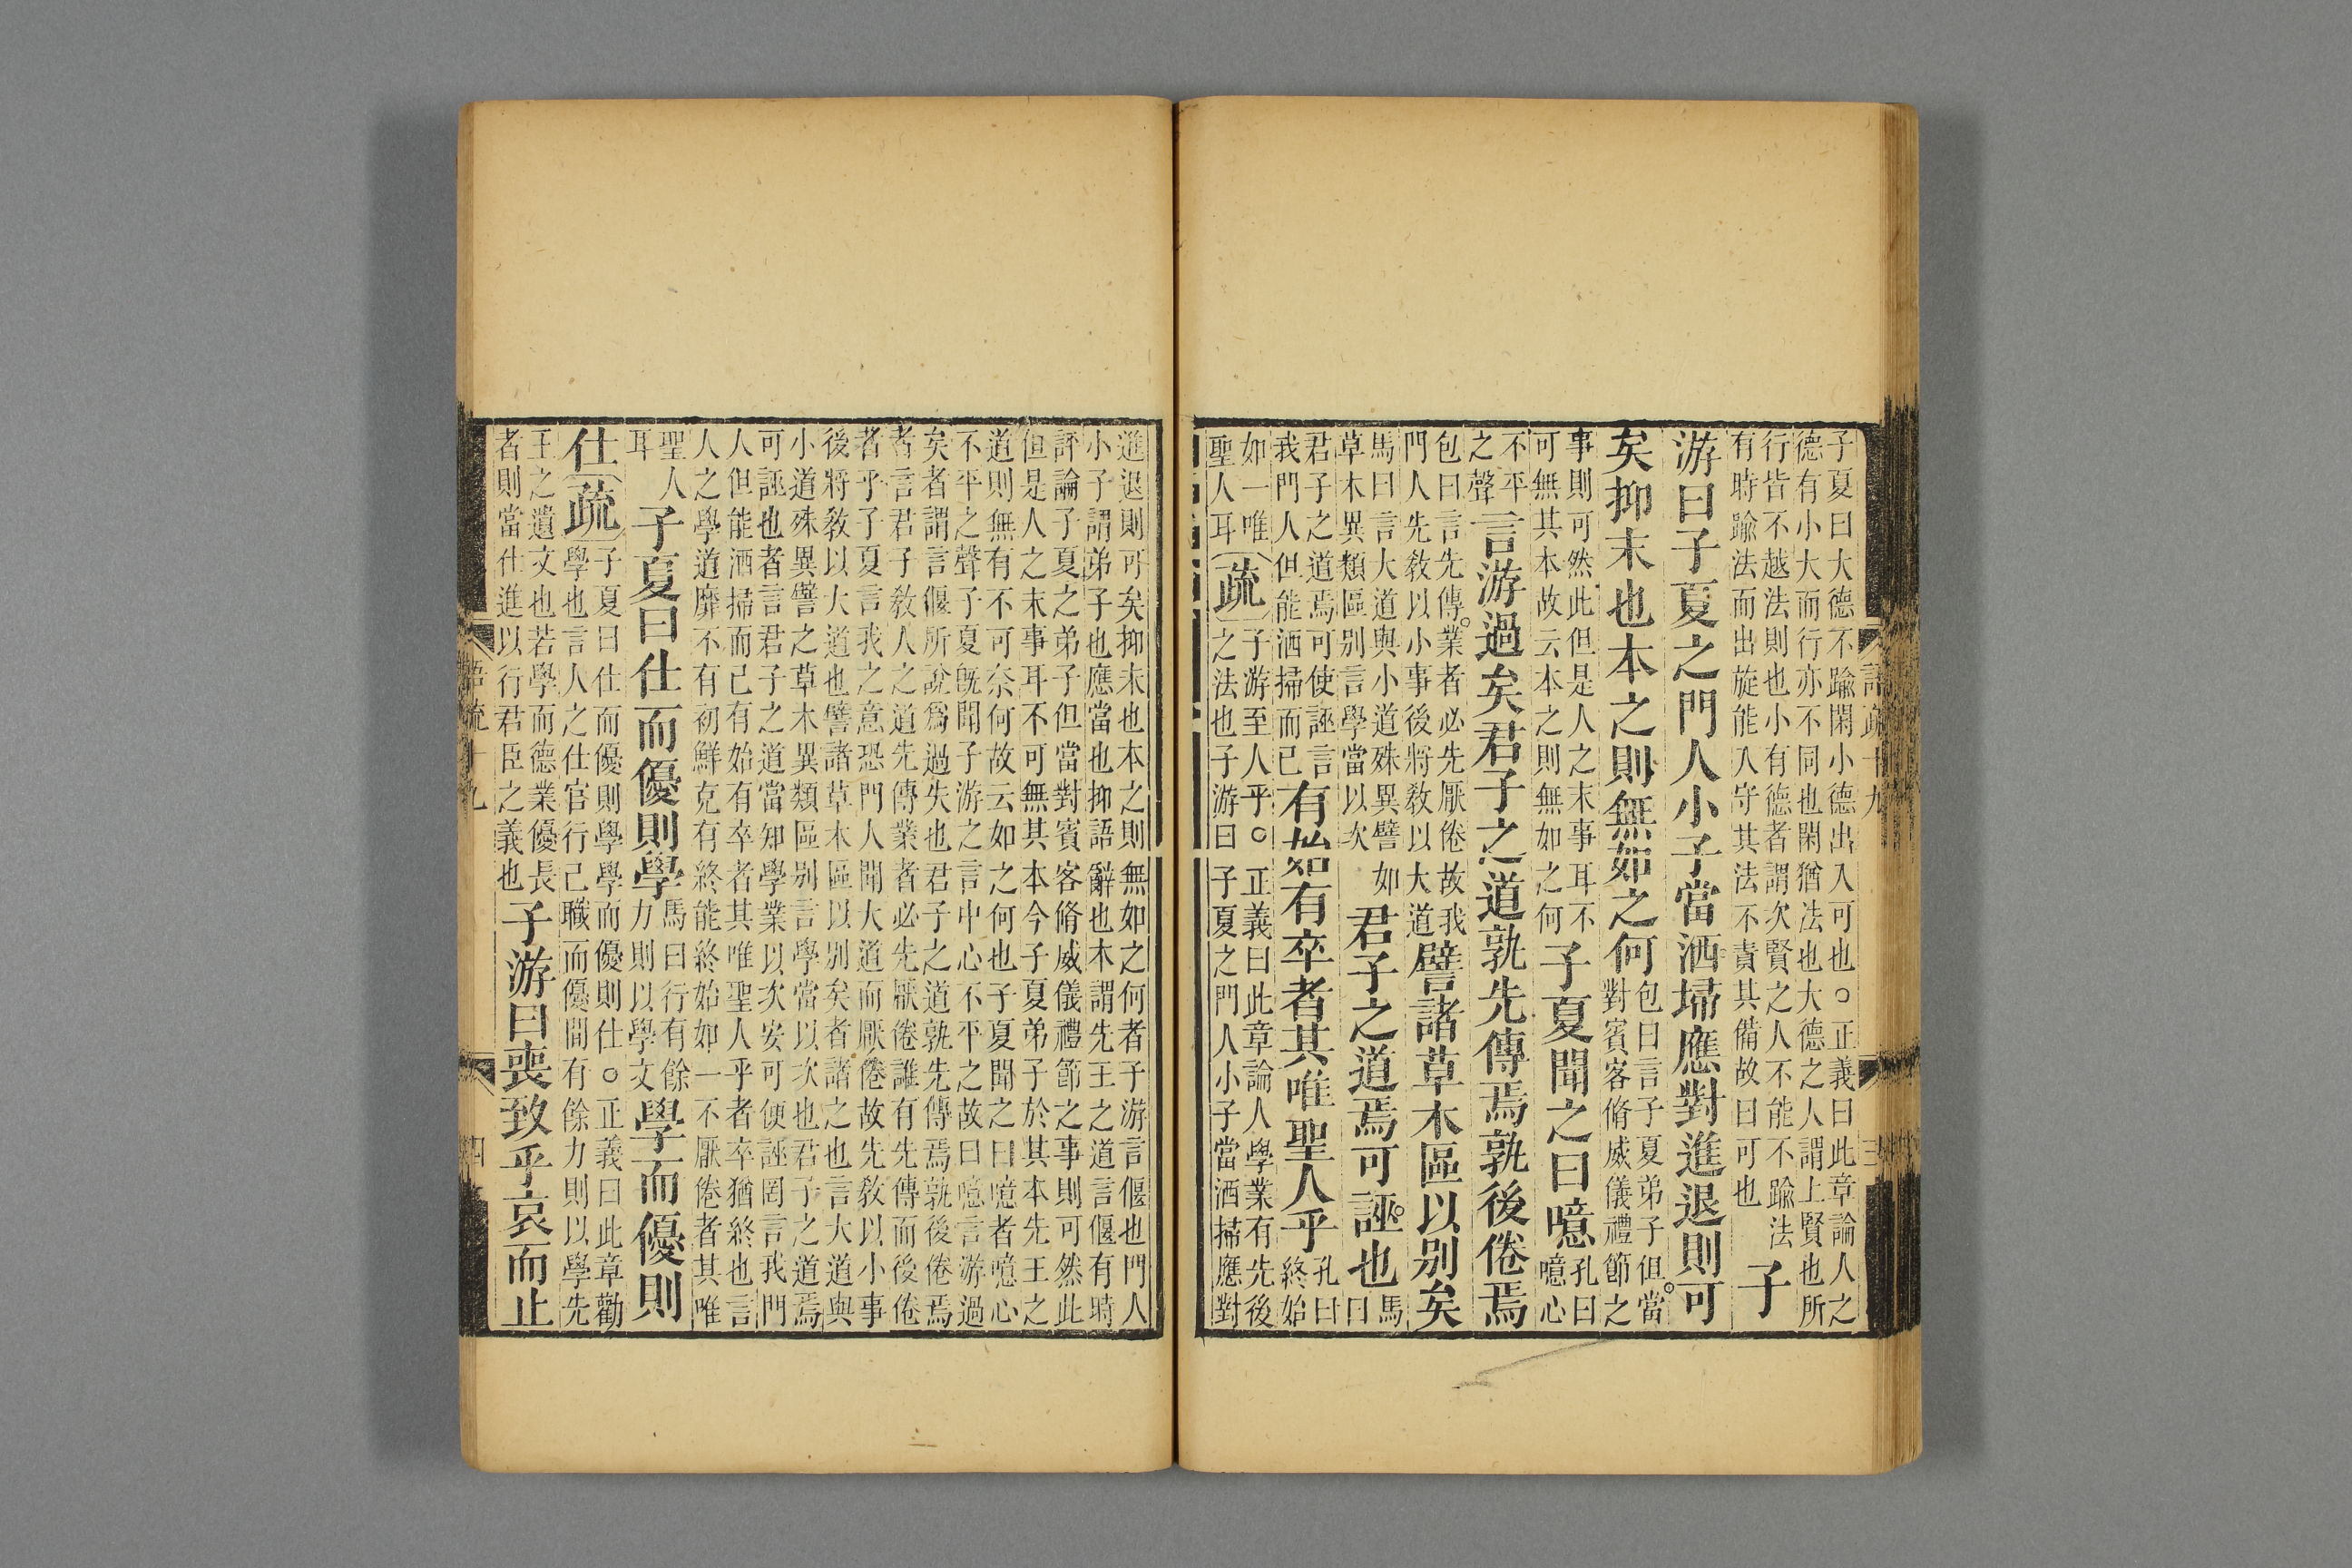 子夏曰大德不踰閑小德出入可也○正義曰此章論人之
德有小大而行亦不同也閑猶法也大德之人謂上賢也所
行皆不越法則也小有德者謂次賢之人不能不踰法
有時踰法而出旋能入守其法不責其備故曰可也
子
游曰子夏之門人小子當洒埽應對進退則可
矣抑末也本之則無如之何
包曰言子夏弟子但當
對賓客脩威儀禮節之
事則可然此但是人之末事耳不
可無其本故云本之則無如之何
子夏聞之曰噫
孔曰
噫心
不平
之聲
言游過矣君子之道孰先傳焉孰後倦焉
包曰言先傳業者必先厭倦故我
門人先敎以小事後將敎以大道
譬諸草木區以別矣
馬曰言大道與小道殊異譬如
草木異類區別言學當以次
君子之道焉可誣也
馬
曰
君子之道焉可使誣言
我門人但能洒掃而已
有始有卒者其唯聖人乎
孔曰
終始
如一唯
聖人耳
疏
子游至人乎○正義曰此章論人學業有先後
之法也子游曰子夏之門人小子當洒掃應對
語疏十九
三
進退則可矣抑末也本之則無如之何者子游言偃也門人
小子謂弟子也應當也抑語辭也本謂先王之道言偃有時
評論子夏之弟子但當對賓客脩威儀禮節之事則可然此
但是人之末事耳不可無其本今子夏弟子於其本先王之
道則無有不可奈何故云如之何也子夏聞之曰噫者噫心
不平之聲子夏旣聞子游之言中心不平之故曰噫言游過
矣者謂言偃所說爲過失也君子之道孰先傳焉孰後倦焉
者言君子敎人之道先傳業者必先厭倦誰有先傳而後倦
者乎子夏言我之意恐門人聞大道而厭倦故先敎以小事
後將敎以大道也譬諸草木區以別矣者諸之也言大道與
小道殊異譬之草木異類區別言學當以次也君子之道焉
可誣也者言君子之道當知學業以次安可便誣罔言我門
人但能洒掃而已有始有卒者其唯聖人乎者卒猶終也言
人之學道靡不有初鮮克有終能終始如一不厭倦者其唯
聖人
耳
子夏曰仕而優則學
馬曰行有餘
力則以學文
學而優則
仕
疏
子夏曰仕而優則學學而優則仕○正義曰此章勸
學也言人之仕官行己職而優閒有餘力則以學先
王之遺文也若學而德業優長
者則當仕進以行君臣之義也
子游曰喪致乎哀而止
語疏十九
四